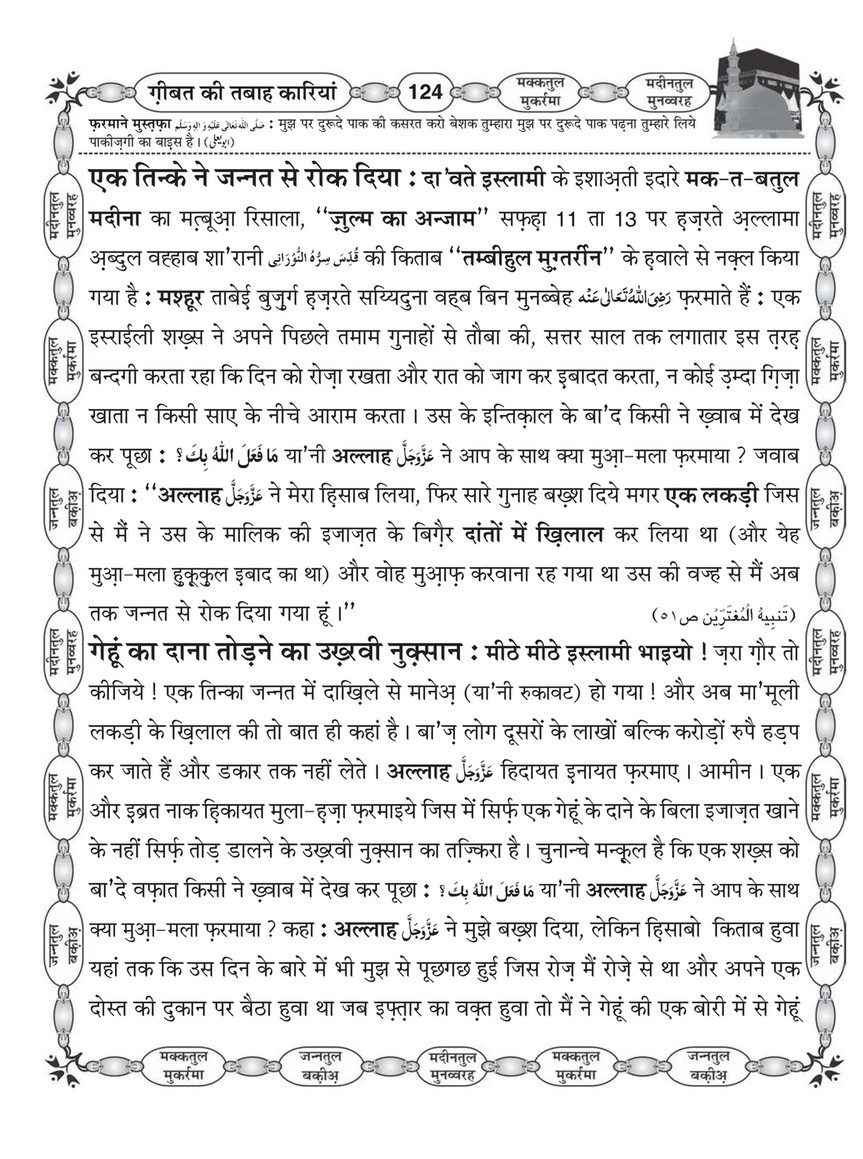 ग़ीबत की तबाह कारियां
124
मक्कतुल
मुकर्रमा
मदीनतुल
मुनव्वरह
फ़रमाने मुस्त़फ़ा صَلَّى اللهُ تَعَالٰى عَلَيْهِ وَاٰلِهٖ وَسَلَّم : मुझ पर दुरूदे पाक की कसरत करो बेशक तुम्हारा मुझ पर दुरूदे पाक पढ़ना तुम्हारे लिये
पाकीज़गी का बाइस है । (ابو یعلیٰ)
एक तिन्के ने जन्नत से रोक दिया : दा'वते इस्लामी के इशाअ़ती इदारे मक-त-बतुल
मदीना का मत़्बूआ़ रिसाला, ‘‘ज़ुल्म का अन्जाम’’ सफ़ह़ा 11 ता 13 पर ह़ज़रते अ़ल्लामा
अ़ब्दुल वह्हाब शा'रानी قُدِّسَ سِرُّهُ النُّوْرَانِی की किताब ‘‘तम्बीहुल मुग़्तर्रीन’’ के ह़वाले से नक़्ल किया
गया है : मश्हूर ताबेई बुज़ुर्ग ह़ज़रते सय्यिदुना वह्ब बिन मुनब्बेह رَضِیَ اللهُ تَعَالٰی عَنْه फ़रमाते हैं : एक
इस्राईली शख़्स ने अपने पिछले तमाम गुनाहों से तौबा की, सत्तर साल तक लगातार इस त़रह़
बन्दगी करता रहा कि दिन को रोज़ा रखता और रात को जाग कर इबादत करता, न कोई उ़म्दा ग़िज़ा
खाता न किसी साए के नीचे आराम करता । उस के इन्तिक़ाल के बा'द किसी ने ख़्वाब में देख
कर पूछा : مَا فَعَلَ اللهُ بِكَ ؟ या'नी अल्लाह عَزَّوَجَلَّ ने आप के साथ क्या मुआ़-मला फ़रमाया ? जवाब
दिया : ‘‘अल्लाह عَزَّوَجَلَّ ने मेरा ह़िसाब लिया, फिर सारे गुनाह बख़्श दिये मगर एक लकड़ी जिस
से मैं ने उस के मालिक की इजाज़त के बिग़ैर दांतों में ख़िलाल कर लिया था (और येह
मुआ़-मला ह़ुक़ूक़ुल इबाद का था) और वोह मुआ़फ़ करवाना रह गया था उस की वज्ह से मैं अब
तक जन्नत से रोक दिया गया हूं ।’’ (تَنبِیهُ الْمُغتَرِّیْن ص٥١)
गेहूं का दाना तोड़ने का उख़्रवी नुक़्सान : मीठे मीठे इस्लामी भाइयो ! ज़रा ग़ौर तो
कीजिये ! एक तिन्का जन्नत में दाख़िले से मानेअ़ (या'नी रुकावट) हो गया ! और अब मा'मूली
लकड़ी के ख़िलाल की तो बात ही कहां है । बा'ज़ लोग दूसरों के लाखों बल्कि करोड़ों रुपै हड़प
कर जाते हैं और डकार तक नहीं लेते । अल्लाह عَزَّوَجَلَّ हिदायत इनायत फ़रमाए । आमीन । एक
और इ़ब्रत नाक ह़िकायत मुला-ह़ज़ा फ़रमाइये जिस में सिर्फ़ एक गेहूं के दाने के बिला इजाज़त खाने
के नहीं सिर्फ़ तोड़ डालने के उख़्रवी नुक़्सान का तज़्किरा है । चुनान्चे मन्क़ूल है कि एक शख़्स को
बा'दे वफ़ात किसी ने ख़्वाब में देख कर पूछा : مَا فَعَلَ اللهُ بِكَ ؟ या'नी अल्लाह عَزَّوَجَلَّ ने आप के साथ
क्या मुआ़-मला फ़रमाया ? कहा : अल्लाह عَزَّوَجَلَّ ने मुझे बख़्श दिया, लेकिन ह़िसाबो किताब हुवा
यहां तक कि उस दिन के बारे में भी मुझ से पूछगछ हुई जिस रोज़ मैं रोज़े से था और अपने एक
दोस्त की दुकान पर बैठा हुवा था जब इफ़्त़ार का वक़्त हुवा तो मैं ने गेहूं की एक बोरी में से गेहूं
मदीनतुल
मुनव्वरह
मक्कतुल
मुकर्रमा
जन्नतुल
बक़ीअ़
मदीनतुल
मुनव्वरह
मक्कतुल
मुकर्रमा
जन्नतुल
बक़ीअ़
मदीनतुल
मुनव्वरह
मक्कतुल
मुकर्रमा
जन्नतुल
बक़ीअ़
मदीनतुल
मुनव्वरह
मक्कतुल
मुकर्रमा
जन्नतुल
बक़ीअ़
मक्कतुल
मुकर्रमा
जन्नतुल
बक़ीअ़
मदीनतुल
मुनव्वरह
मक्कतुल
मुकर्रमा
जन्नतुल
बक़ीअ़